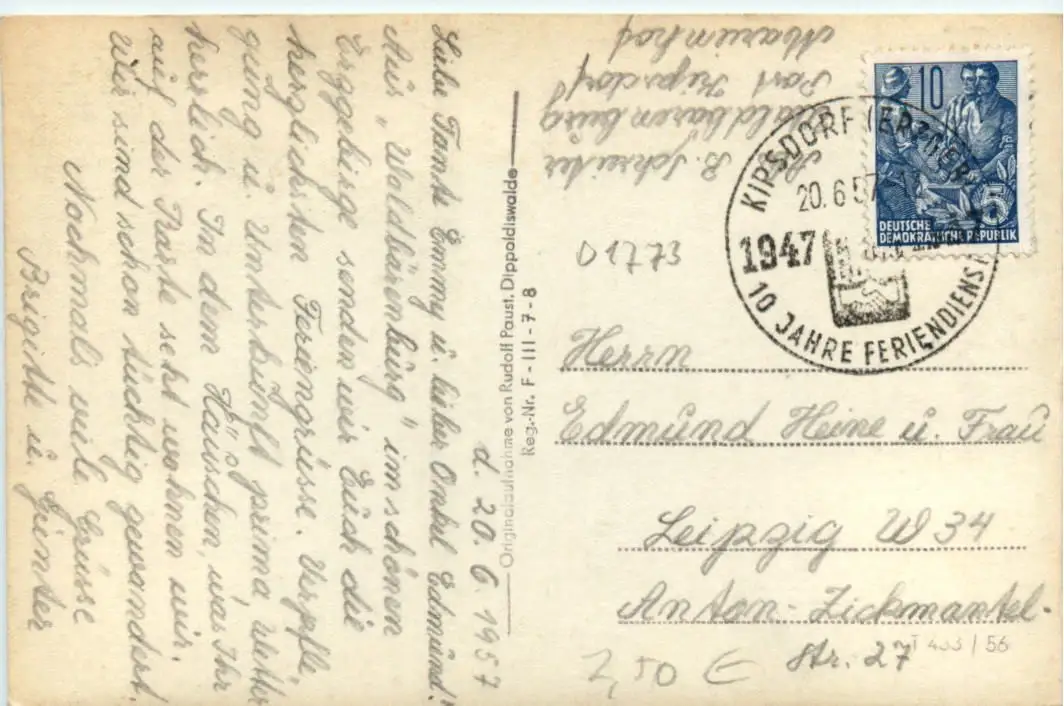 d. 20.6.1957
Liebe Tante Emmy u. lieber Onkel Edmund!
Aus „Waldbärenburg" im schönen
Erzgebirge senden wir Euch die
herzlichsten Feriengrüsse. Verpfle,
gung u. Unterkunft prima, Wetter
herrlich. In dem Häuschen, was Ihr
auf der Karte seht wohnen wir.
Wir sind schon tüchtig gewandert.
Nochmals viele Grüsse
Brigitte u. Günter
Originalaufnahme von Rudolf Paust, Dippoldiswalde
Reg.-Nr. F - III - 7 - 8
B. Schreiter
Waldbärenburg
Post Kipsdorf
Marienhof
10
5
DEUTSCHE
DEMOKRATISCHE REPUBLIK
KIPSDORF (ERZGEB
20.6.57
1947
10 JAHRE FERIENDIENST
D1773
Herrn
Edmund Heine u. Frau
Leipzig W 34
Anton-Zickmantel-
Str. 27
433 / 56
2,50 €